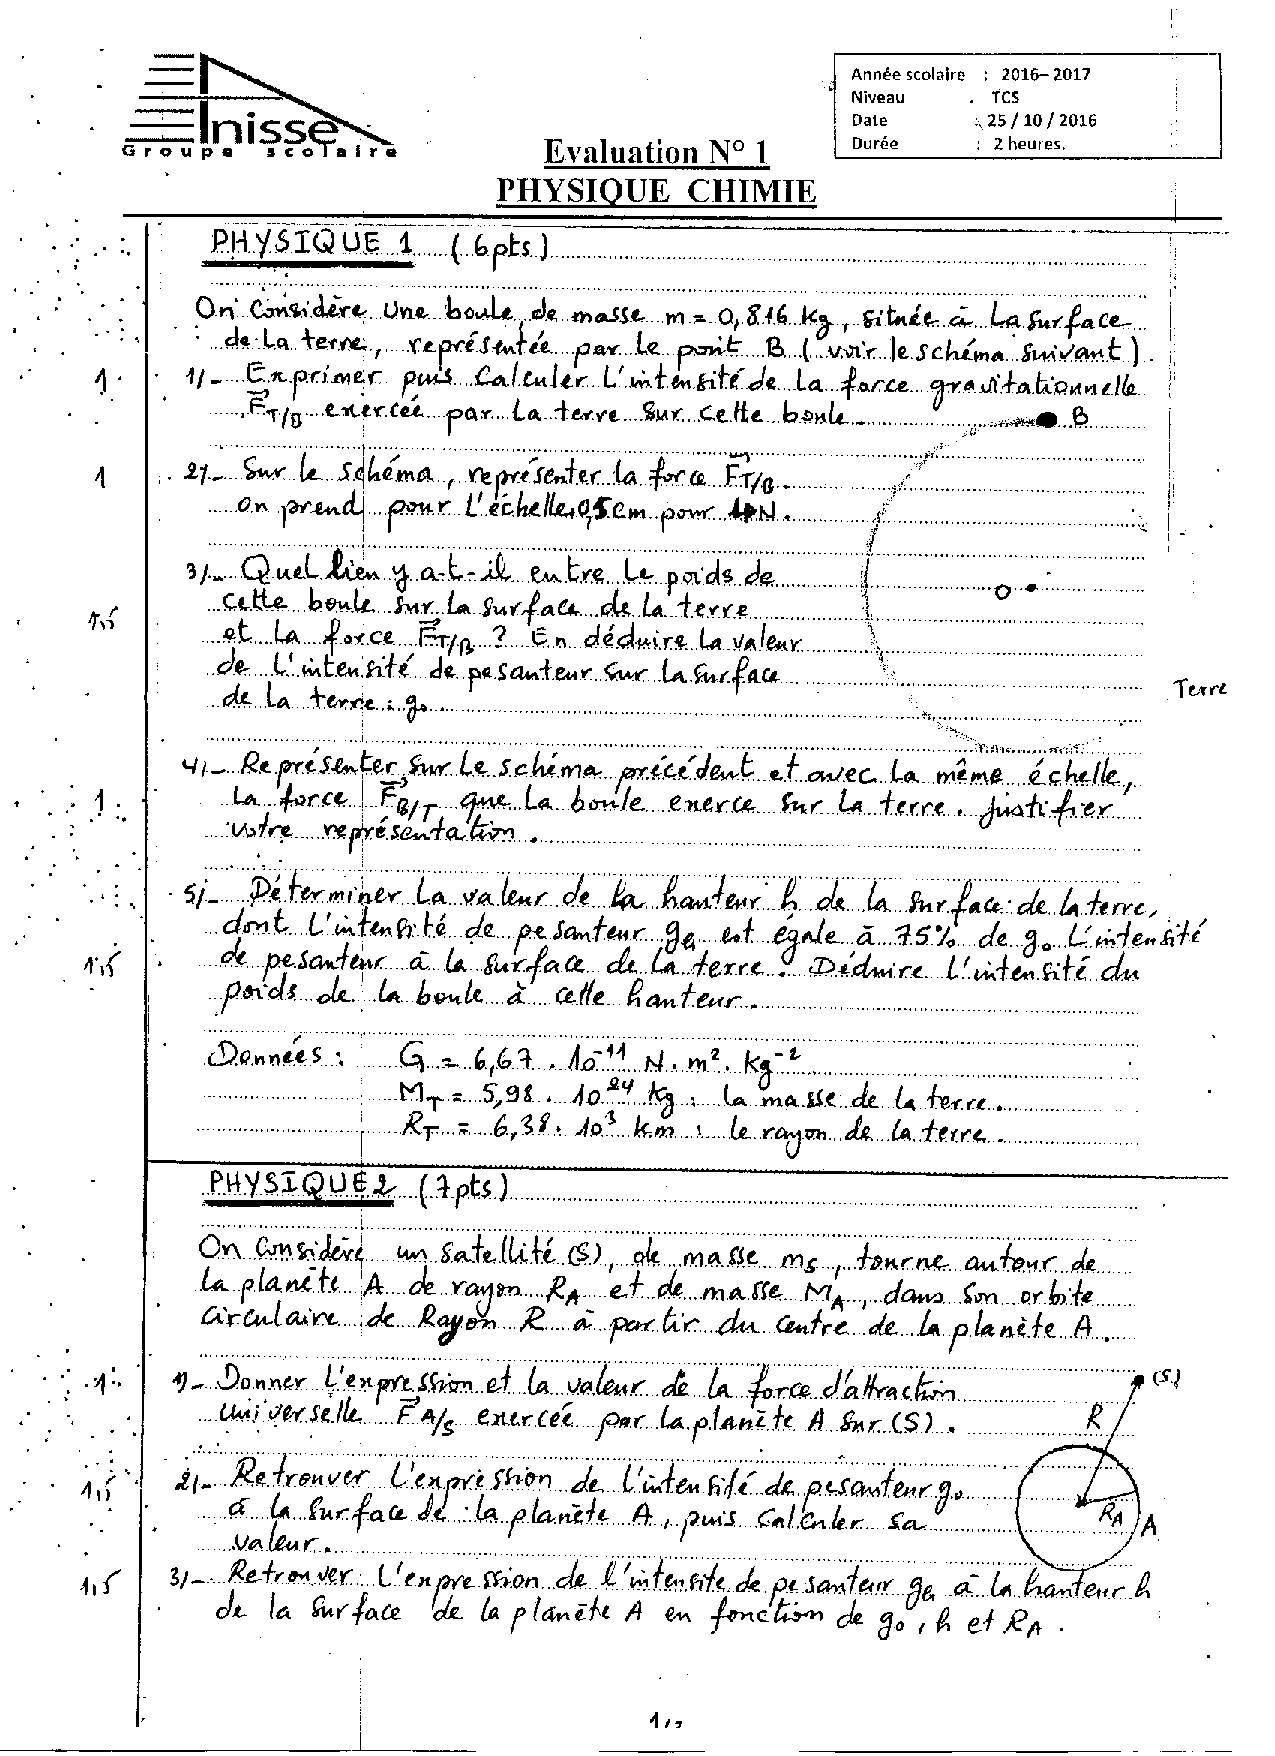 Enisse
Groupe scolaire
Année scolaire : 2016–2017
Niveau . TCS
Date : 25 / 10 / 2016
Durée : 2 heures.
Evaluation N° 1
PHYSIQUE CHIMIE
PHYSIQUE 1 (6pts)
On Considère Une boule, de masse m = 0,816 kg, située à La surface
de La terre, représentée par Le point B (voir le schéma suivant).
1 1/- Exprimer puis Calculer L'intensité de La force gravitationnelle
F⃗T/B exercée par La terre sur cette boule.
B
1 2/- Sur le schéma, représenter la force F⃗T/B.
on prend pour L'échelle 0,5cm pour N.
3/- Quel lien y a-t-il entre Le poids de
O
cette boule sur la surface de la terre
1,5 et La force F⃗T/B ? En déduire La valeur
de L'intensité de pesanteur sur la surface
de la terre : g₀
Terre
4/- Représenter sur Le schéma précédent et avec La même échelle,
1 La force F⃗B/T que La boule exerce sur La terre. justifier
votre représentation.
5/- Déterminer La valeur de la hauteur h de la surface de la terre,
dont L'intensité de pesanteur gh est égale à 75% de g₀ L'intensité
1,5 de pesanteur à la surface de la terre. Déduire L'intensité du
poids de la boule à cette hauteur.
Données : G = 6,67 . 10⁻¹¹ N . m² . kg⁻²
MT = 5,98 . 10²⁴ kg : la masse de la terre.
RT = 6,38 . 10³ km : le rayon de la terre.
PHYSIQUE 2 (7pts)
On Considère un satellité (S), de masse ms, tourne autour de
la planète A de rayon RA et de masse MA, dans son orbite
Circulaire de Rayon R à partir du centre de la planète A.
1 1)- Donner L'expression et la valeur de la force d'attraction
(S)
universelle F⃗A/S exercée par la planète A sur (S).
R
1,5 2/- Retrouver L'expression de L'intensité de pesanteur g₀
à la surface de la planète A, puis Calculer sa
RA A
valeur.
1,5 3/- Retrouver L'expression de l'intensité de pesanteur gh à la hauteur h
de la surface de la planète A en fonction de g₀, h et RA.